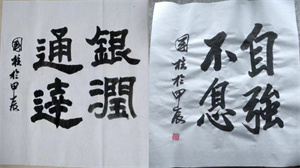 銀潤
通達
國柱於甲辰
自強
不息
國柱於甲辰